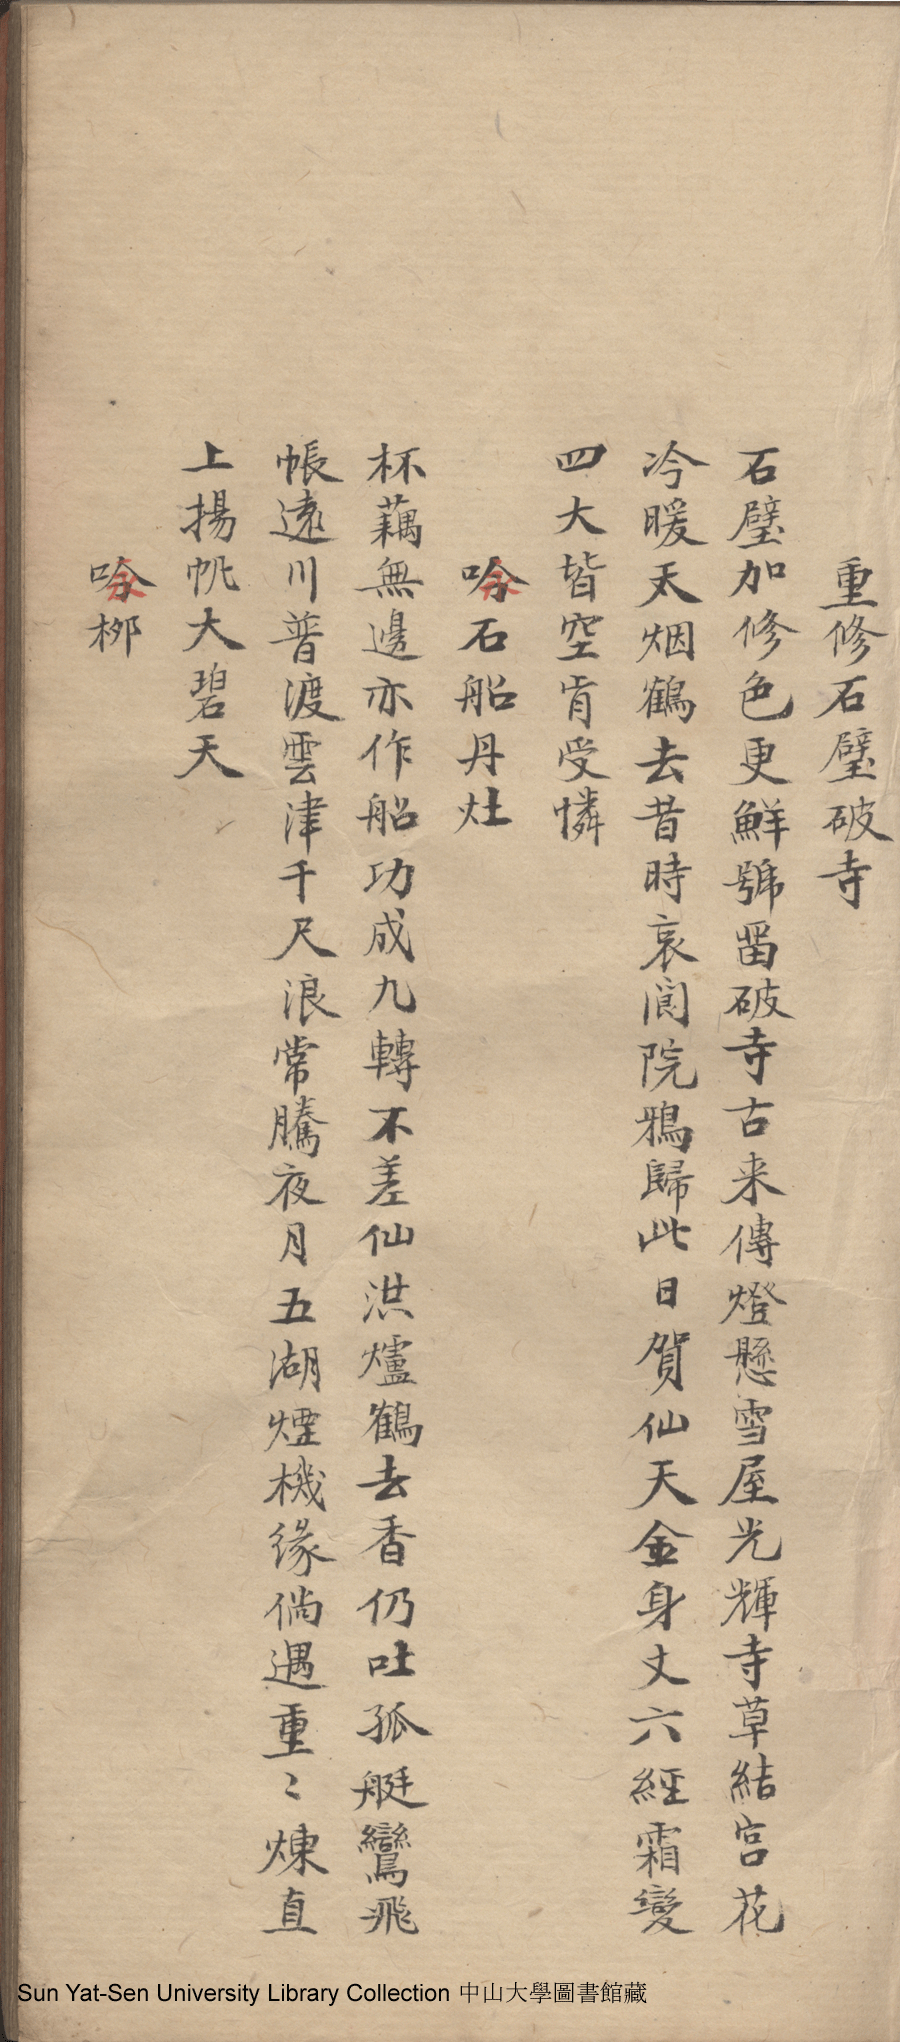 重修石壁破寺
石壁加修色更鮮號畱破寺古来傳燈懸雪屋光輝寺草結宫花
冷暖天烟鶴去昔時哀閬院鴉歸此日賀仙天金身丈六經霜變
四大皆空肯受憐
唫石船丹灶
杯藕無邊亦作船功成九轉不差仙洪爐鶴去香仍吐孤艇鸞飛
帳遠川普渡雲津千尺浪常騰夜月五湖煙機緣倘遇重〻煉直
上揚帆大碧天
唫栁
Sun Yat-Sen University Library Collection 中山大學圖書館藏